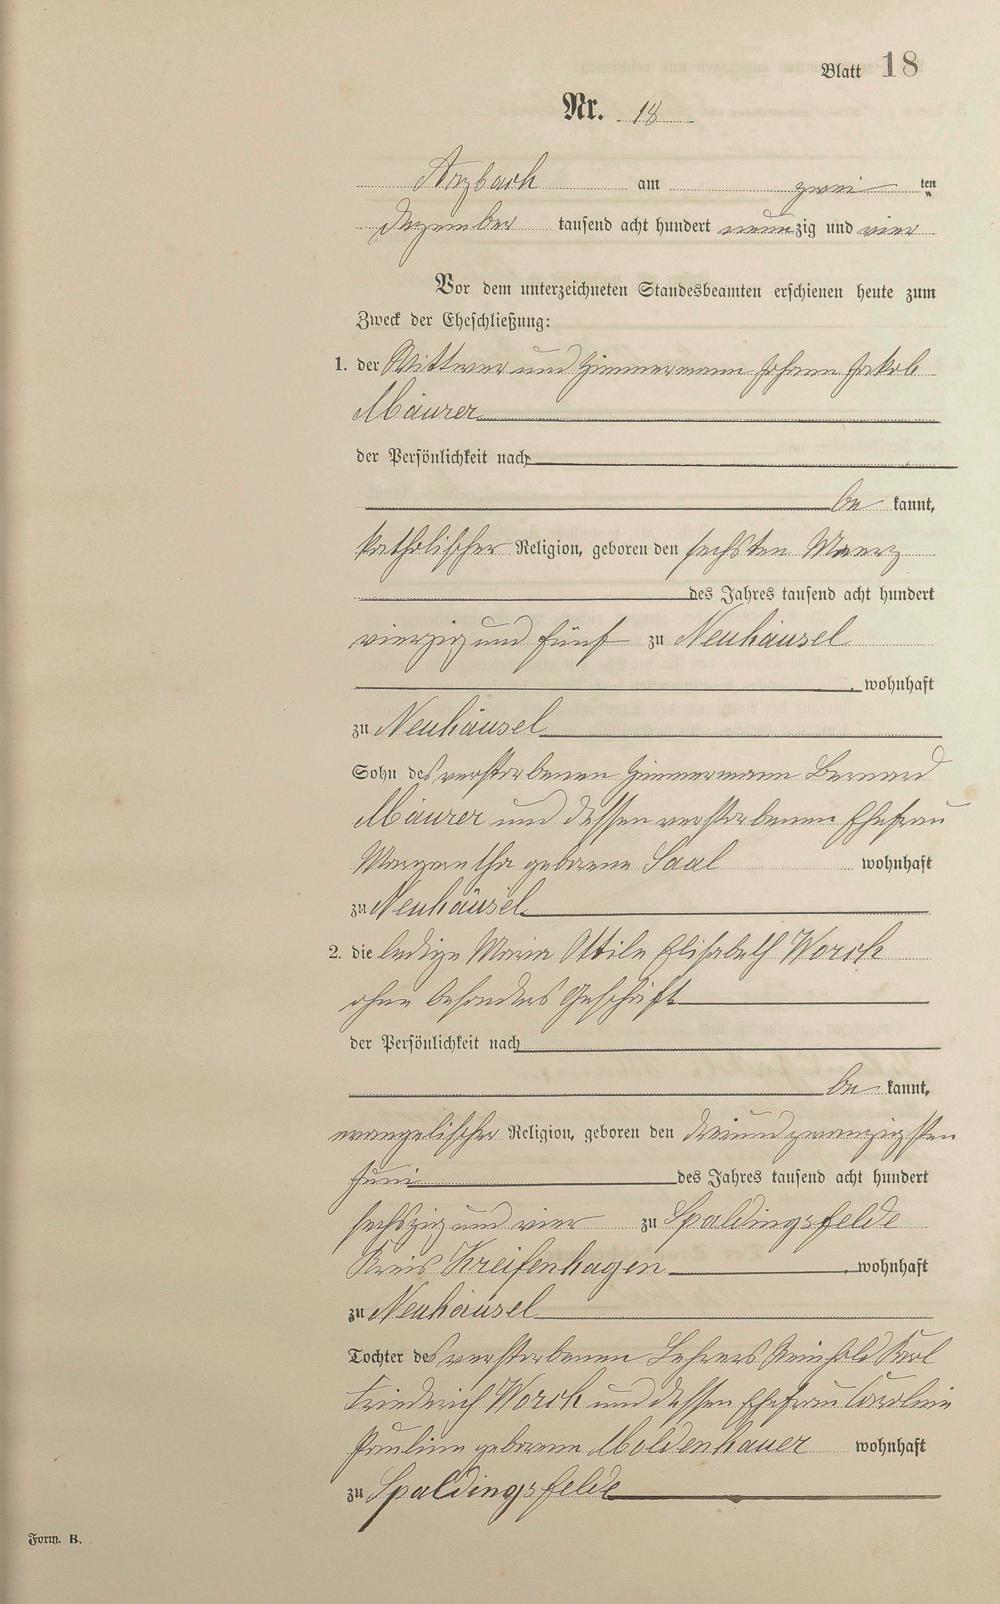 Blatt 18
Nr. 18
Arzbach am zwei ten
Dezember tausend acht hundert neunzig und vier
Vor dem unterzeichneten Standesbeamten erschienen heute zum
Zweck der Eheschließung:
1. der Wittwer und Zimmermann Johann Jakob
Mäurer
der Persönlichkeit nach
be kannt,
katholischer Religion, geboren den sechsten Maerz
des Jahres tausend acht hundert
vierzig und fünf zu Neuhäusel
, wohnhaft
zu Neuhäusel
Sohn des verstorbenen Zimmermann Bernard
Mäurer und dessen verstorbenen Ehefrau
Margaretha geborene Saal wohnhaft
zu Neuhäusel
2. die ledige Maria Ottile Elisabeth Worch
ohne besonderes Geschäft
der Persönlichkeit nach
be kannt,
evangelischer Religion, geboren den dreiundzwanzigsten
Juni des Jahres tausend acht hundert
sechszig und vier zu Spaldingsfelde
Kreis Greifenhagen , wohnhaft
zu Neuhäusel
Tochter des verstorbenen Lehrers Reinhold Karl
Friedrich Worch und dessen Ehefrau Caroline
Pauline geborene Moldenhauer wohnhaft
zu Spaldingsfelde
Form. B.